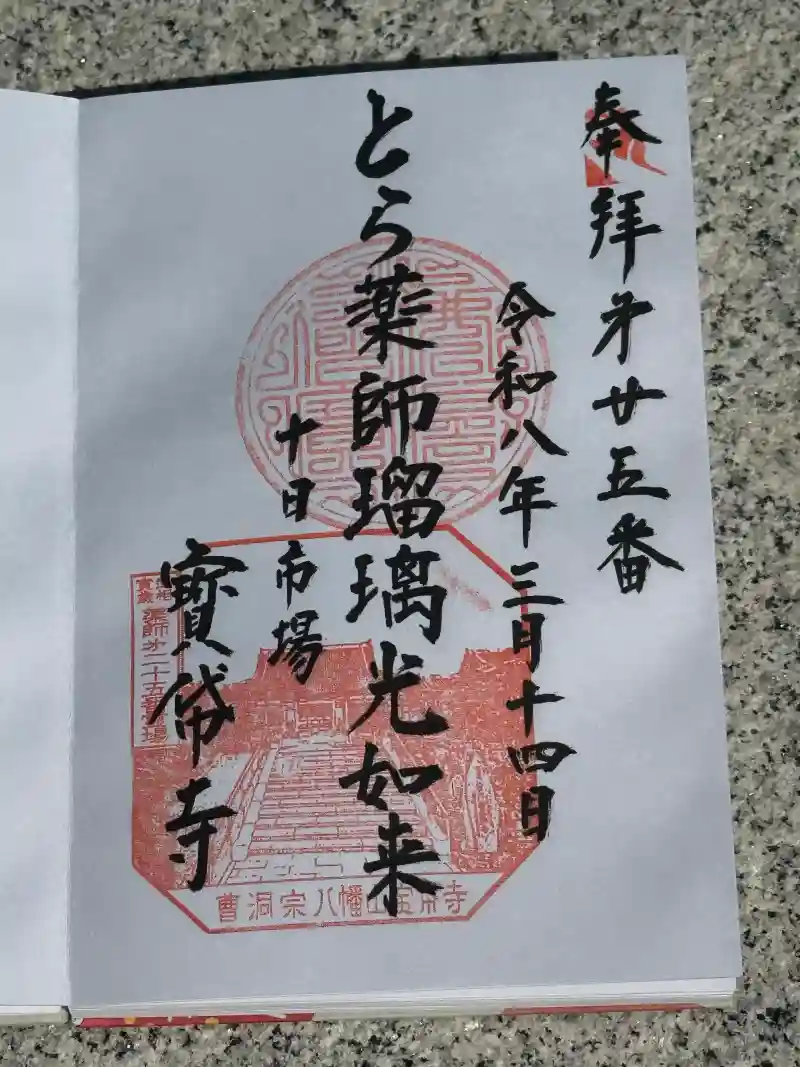 奉拝㐧廿五番
令和八年三月十四日
とら薬師瑠璃光如来
十日市場
寶帒寺
寅歳
薬師㐧二十五番霊場
曹洞宗八幡山宝帒寺